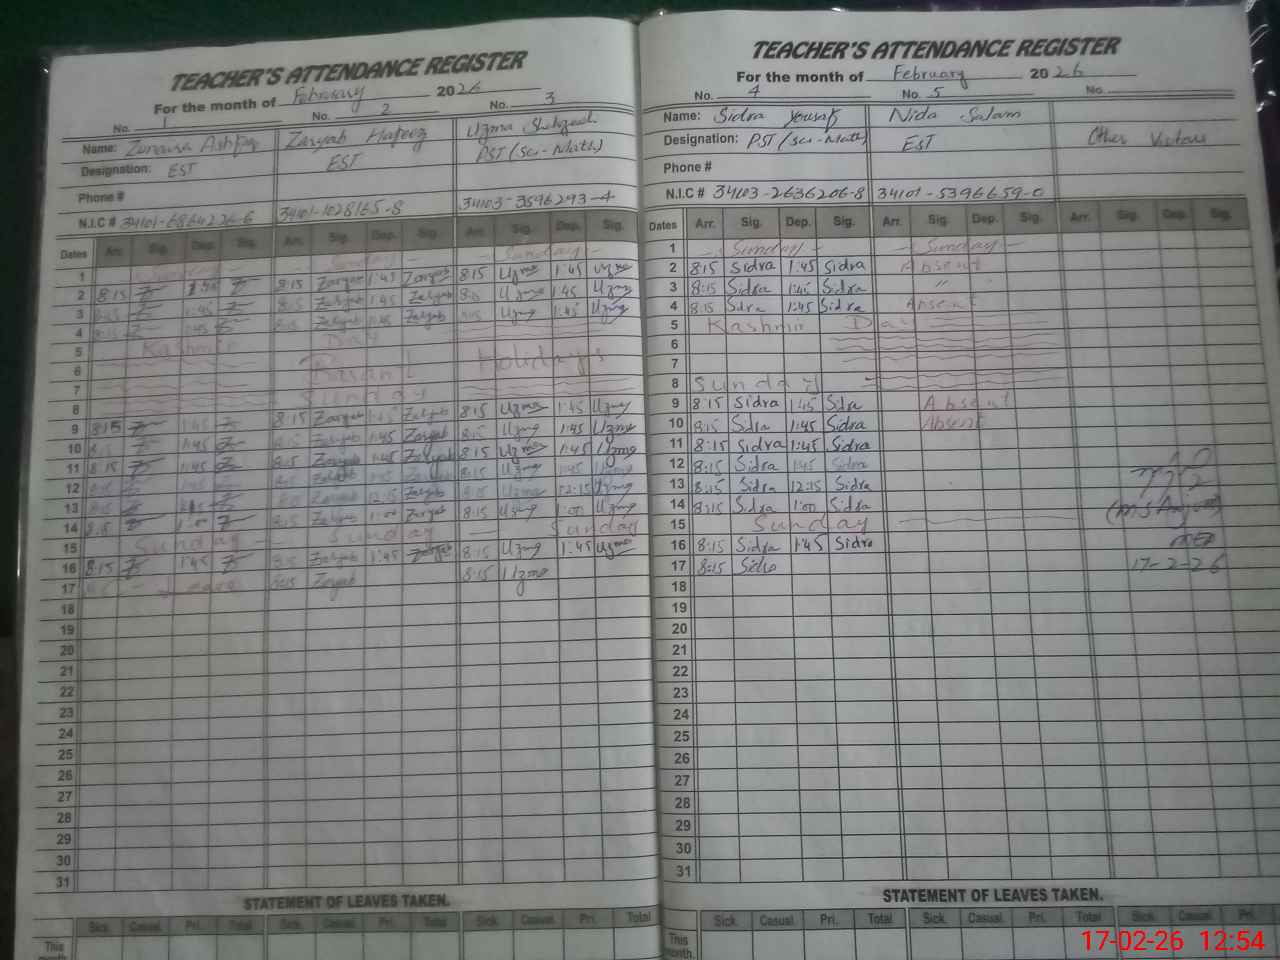 TEACHER'S ATTENDANCE REGISTER
For the month of February 2026
No. 1 No. 2 No. 3
Name: Zunaira Zaryab Hafeez Uzma Shahzadi
Designation: EST EST PST (Sci-Math)
Phone #
N.I.C # 34101-6864226-6 34101-1028165-8 34103-3596293-4
Dates Arr. Sig. Dep. Sig. Arr. Sig. Dep. Sig. Arr. Sig. Dep. Sig.
1 Sunday Sunday Sunday
2 8:15 1:45 8:15 Zaryab 1:45 Zaryab 8:15 Uzma 1:45 Uzma
3 8:15 1:45 8:15 Zaryab 1:45 Zaryab 8:15 Uzma 1:45 Uzma
4 8:15 1:45 8:15 Zaryab 1:45 Zaryab 8:15 Uzma 1:45 Uzma
5 Kashmir Day
6 Basant Holidays
7
8 Sunday
9 8:15 1:45 8:15 Zaryab 1:45 Zaryab 8:15 Uzma 1:45 Uzma
10 8:15 1:45 8:15 Zaryab 1:45 Zaryab 8:15 Uzma 1:45 Uzma
11 8:15 1:45 8:15 Zaryab 1:45 Zaryab 8:15 Uzma 1:45 Uzma
12 8:15 1:45 8:15 Zaryab 1:45 Zaryab 8:15 Uzma 1:45 Uzma
13 8:15 8:15 Zaryab 12:15 Zaryab 8:15 Uzma 12:15 Uzma
14 8:15 1:00 8:15 Zaryab 1:00 Zaryab 8:15 Uzma 1:00 Uzma
15 Sunday Sunday Sunday
16 8:15 1:45 8:15 Zaryab 1:45 Zaryab 8:15 Uzma 1:45 Uzma
17 Leave 8:15 Zaryab 8:15 Uzma
18
19
20
21
22
23
24
25
26
27
28
29
30
31
STATEMENT OF LEAVES TAKEN.
Sick. Casual. Pri. Total Sick. Casual. Pri. Total Sick. Casual. Pri. Total
This month.
TEACHER'S ATTENDANCE REGISTER
For the month of February 2026
No. 4 No. 5 No.
Name: Sidra Yousaf Nida Salam
Designation: PST (Sci-Math) EST Other Visitors
Phone #
N.I.C # 34103-2636206-8 34101-5396659-0
Dates Arr. Sig. Dep. Sig. Arr. Sig. Dep. Sig. Arr. Sig. Dep. Sig.
1 Sunday Sunday
2 8:15 Sidra 1:45 Sidra Absent
3 8:15 Sidra 1:45 Sidra " "
4 8:15 Sidra 1:45 Sidra Absent
5 Kashmir Day
6
7
8 Sunday
9 8:15 Sidra 1:45 Sidra Absent
10 8:15 Sidra 1:45 Sidra Absent
11 8:15 Sidra 1:45 Sidra
12 8:15 Sidra 1:45 Sidra
13 8:15 Sidra 12:15 Sidra
14 8:15 Sidra 1:00 Sidra
15 Sunday
16 8:15 Sidra 1:45 Sidra
17 8:15 Sidra 17-2-26
18
19
20
21
22
23
24
25
26
27
28
29
30
31
STATEMENT OF LEAVES TAKEN.
Sick. Casual. Pri. Total Sick. Casual. Pri. Total Sick. Casual. Pri.
This month.
17-02-26 12:54